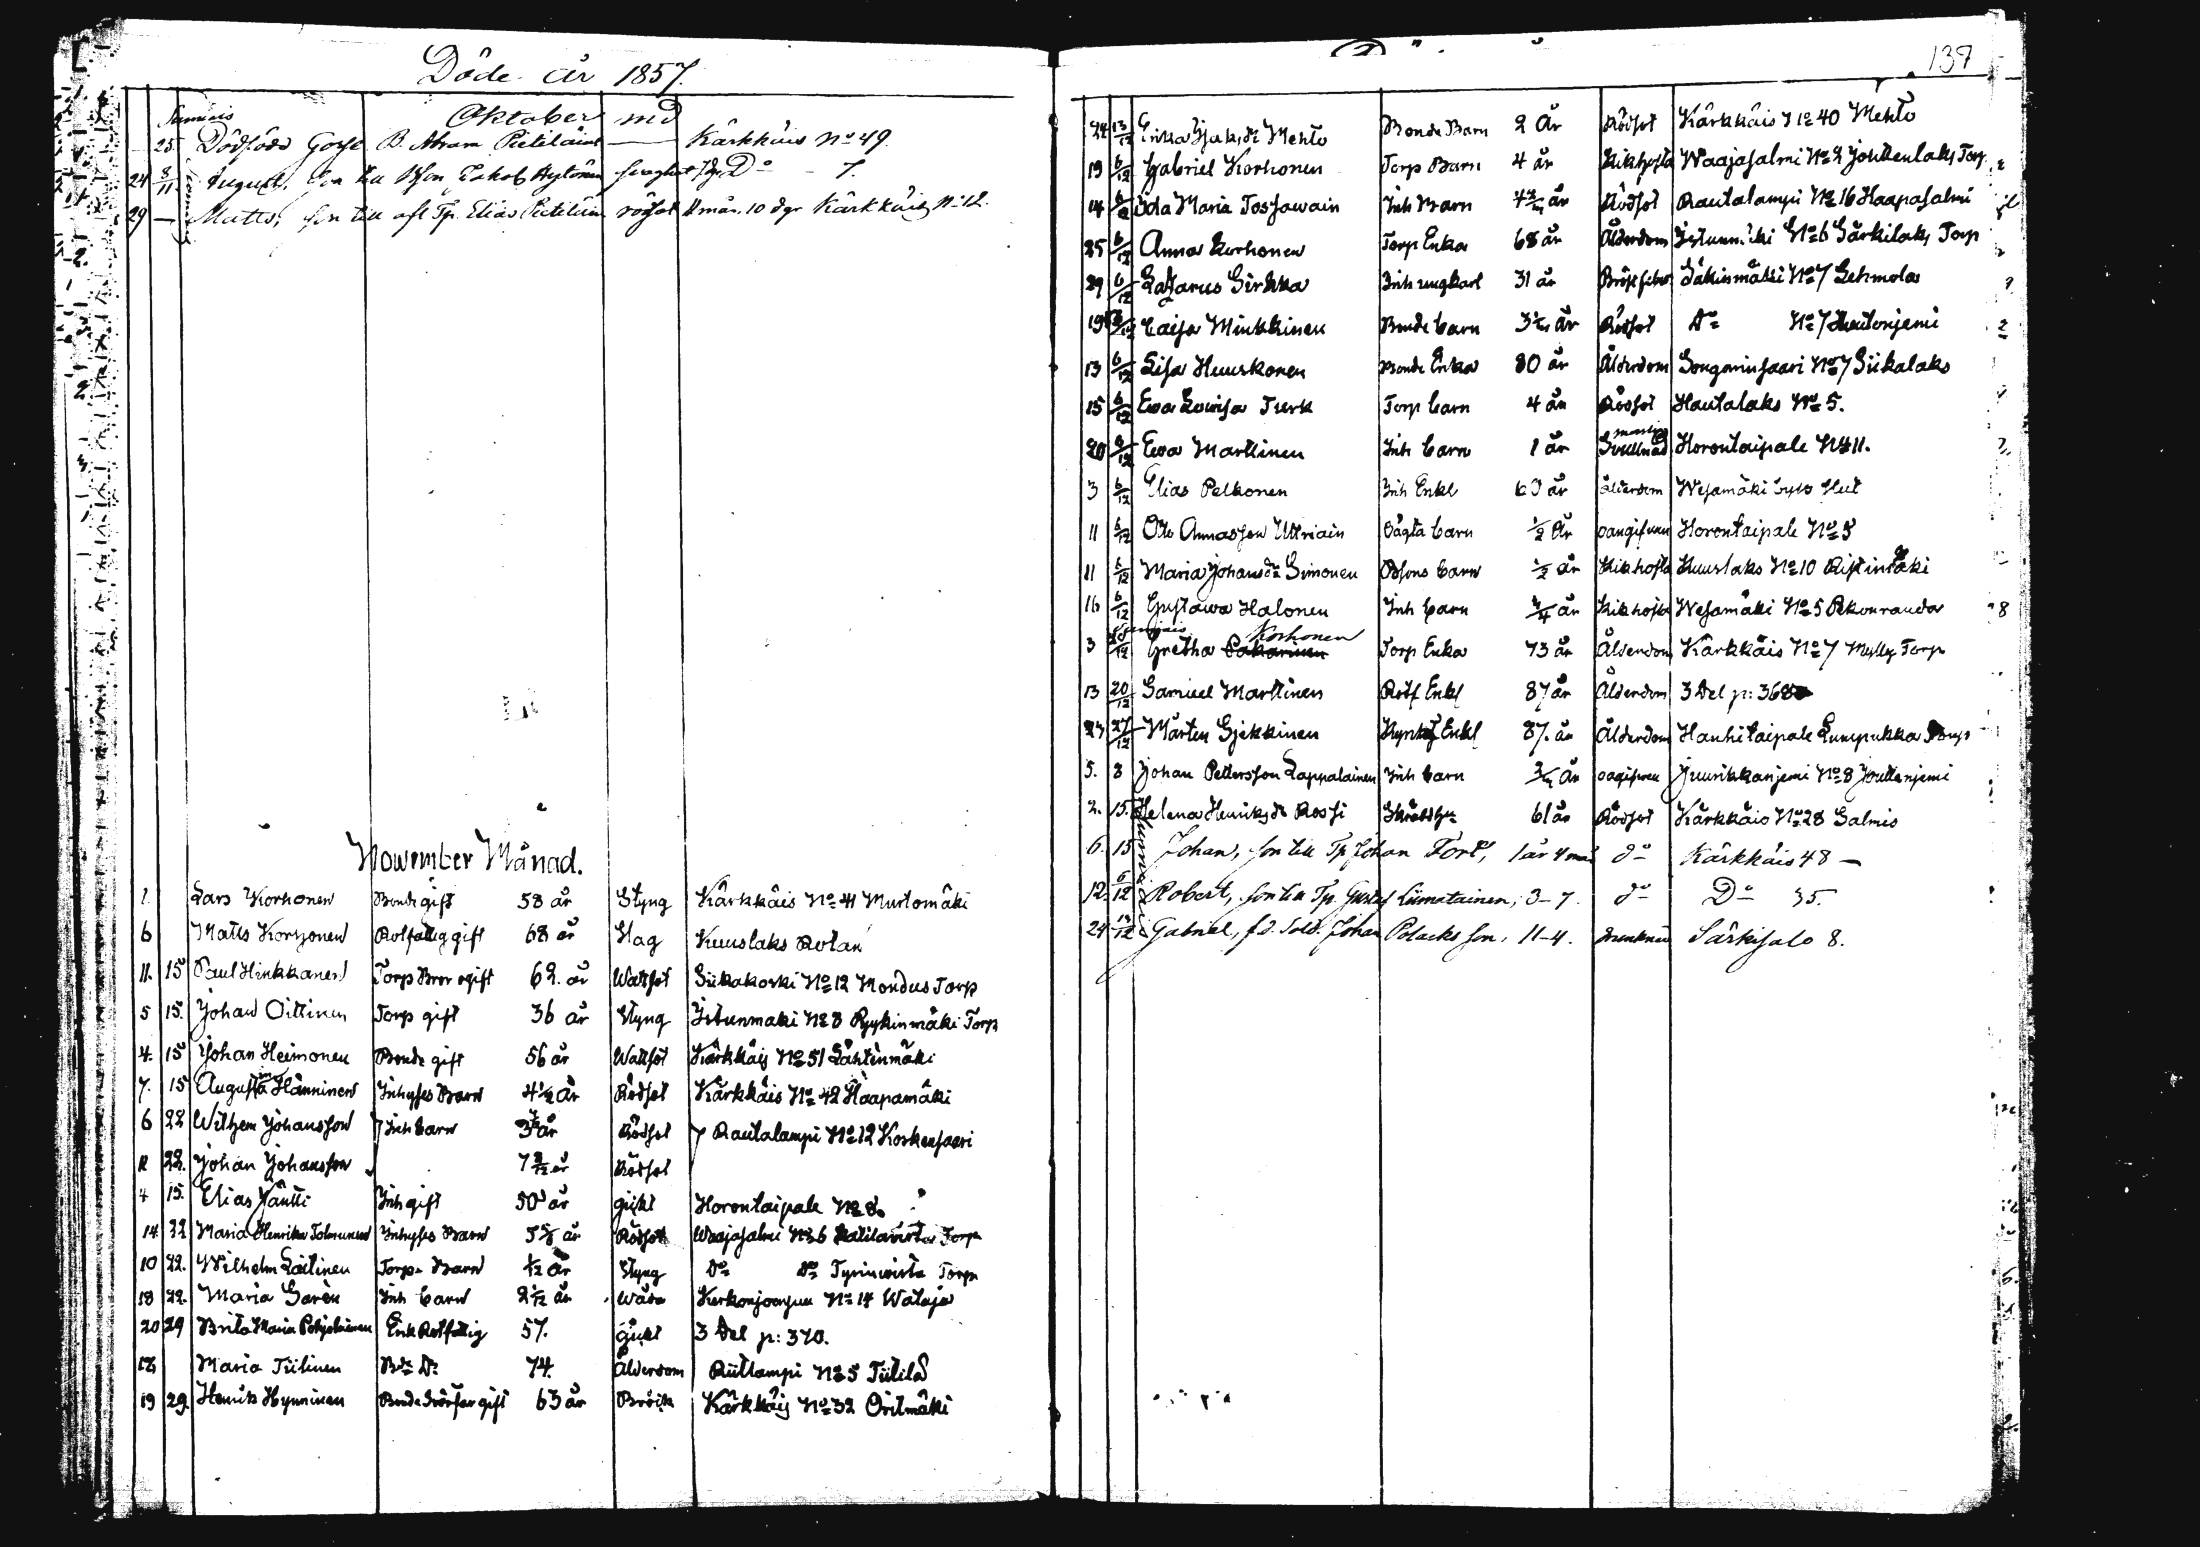 Döde år 1857.
Sumiais
Oktober md
25. Dödfödd Gosse B. Abram Pietiläinen — Kärkkäis No 49.
24 8/11 August, Eva till Jakob Do 7.
29 — Matts, son till afl. Tp. Elias Pietiläin rödsot 11 mån. 10 dgr Kärkkäis No 12.
November Månad.
1. Lars Korhonen Bonde gift 58 år Styng Kärkkäis No 41 Murtomäki
6 Matts Korhonen Rotfattig gift 68 år Slag Kuuslaks Rotan
11. 15 Paul Hinkkanen Torp Bror ogift 62 år Wattsot Siikakoski No 12 Mondus Torp
5 15. Johan Oittinen Torp gift 36 år Styng Istunmäki No 8 Ryykinmäki Torp
4. 15 Johan Heimonen Bonde gift 56 år Wattsot Kärkkäis No 51 Lähtinmäki
7. 15 August Hänninen Inhyses Barn 4 1/2 år Rödsot Kärkkäis No 42 Haapamäki
6 22 Wilhem Johansson Inh barn 3 år Rödsot Rautalampi No 12 Koskensaari
12 22. Johan Johansson 7 2/12 år Rödsot
4 15. Elias Jäntti Inh gift 50 år gickt Horontaipale No 8.
14 22 Maria Henrika Tolmunen Inhyses Barn 5 år Rödsot Waajasalmi No 6 Torp
10 22. Wilhelm Laitinen Torp. Barn 1/12 år Styng Do Do Tyrinwirta Torp
18 22. Maria Garén Inh barn 2 1/12 år Kerkonjoensuu No 14 Wataja
20 29 Brita Maria Pohjolainen Enk Rotfattig 57. gickt 3 Del p: 370.
18 Maria Tiilinen Do Do 74. Ålderdom Riitlampi No 5 Tiitilä
19 29. Henrik Hynninen Bonde gift 63 år Kärkkäis No 32 Oritmäki
139
24 13/12 Erika Isaksdr Mehto Bonde Barn 2 år Rödsot Kärkkäis No 40 Mehto
19 6/12 Gabriel Korhonen Torp Barn 4 år Kikhosta Waajasalmi No 2 Jouttenlaks Torp
14 6/12 Ida Maria Tossawain Inh Barn 4 år Rödsot Rautalampi No 16 Haapasalmi
25 6/12 Anna Korhonen Torp Enka 68 år Ålderdom Istunmäki No 6 Särkilaks Torp
29 6/12 Lazarus Sirkka Inh ungkarl 31 år Bröstfeber Säkinmäki No 7 Lehmola
19 6/12 Caisa Minkkinen Bonde barn 3 år Rödsot Do No 7 Hautoniemi
13 6/12 Lisa Huuskonen Bonde Enka 80 år Ålderdom Songarinsaari No 7 Siikalaks
15 6/12 Ewa Lowisa Turk Torp barn 4 år Rödsot Hautalaks No 5.
20 6/12 Ewa Marttinen Inh barn 1 år Svullnad Horontaipale No 11.
3 6/12 Elias Pelkonen Inh Enkl 63 år ålderdom Wesamäki
11 6/12 Otto Annasson Uttriain oägta barn 1/2 år oangifwen Horontaipale No 5
11 6/12 Maria Johansdr Simonen barn 1/2 år Kikhosta Kuuslaks No 10 Ristimäki
16 6/12 Gustawa Halonen Inh barn 3/4 år Kikhosta Wesamäki No 5 Pekonrauda
Sumiais
3 12 Gretha Pakarinen Korhonen Torp Enka 73 år Ålderdom Kärkkäis No 7 Torp
13 20/12 Samuel Marttinen Rotf Enkl 87 år Ålderdom 3 Del p: 368
23 27/12 Mårten Gjekkinen Enkl 87. år Ålderdom Hanhitaipale Lumpukka Torp
5. 8 Johan Pettersson Lappalainen Inh barn år Juurikkaniemi No 8 Jouttenjemi
2. 15. Helena Henriksdr Rossi 61 år Rödsot Kärkkäis No 28 Salmis
Sumiais
6. 15 Johan, son till Tp. Johan Fort, 1 år 4 mån do Kärkkäis 48 —
12. 6/12 Robert, son till Tp. Gustaf Liimatainen, 3 – 7. do Do 35.
24 13/12 Gabriel, f.d. Sold. Johan Polacks son, 11–4. drunknad Särkisalo 8.